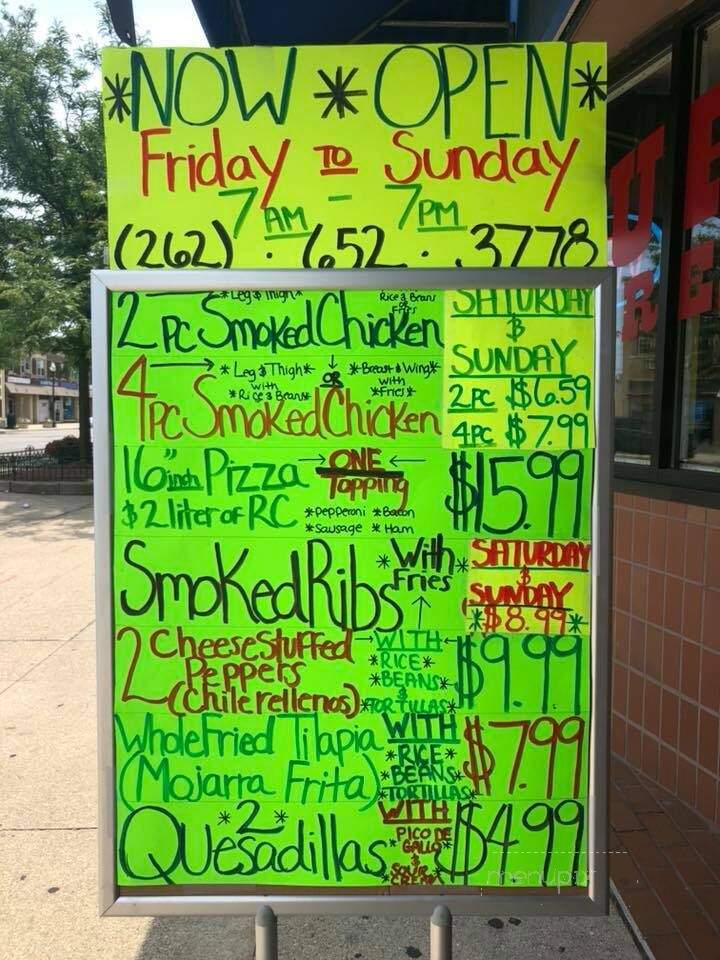 *NOW * OPEN*
Friday TO Sunday
7 AM - 7 PM
(262) · 652 · 3778
*Leg & Thigh*
Rice & Beans
or
Fries
2 PC Smoked Chicken
SATURDAY
&
SUNDAY
2PC $6.59
4PC $7.99
* Leg & Thigh*
with
*Rice & Beans*
OR
*Breast & Wing*
with
*Fries*
4PC Smoked Chicken
16" inch Pizza
& 2 liter of RC
ONE
Topping
*Pepperoni *Bacon
*Sausage *Ham
$15.99
Smoked Ribs
*With*
Fries
SATURDAY
&
SUNDAY
*$8.99*
2 Cheese Stuffed
Peppers
(Chile rellenos)
WITH
*RICE*
*BEANS*
&
*TORTILLAS*
$9.99
Whole Fried Tilapia
(Mojarra Frita)
WITH
*RICE*
*BEANS*
*TORTILLAS*
$7.99
*2*
Quesadillas
WITH
*PICO DE
GALLO*
&
SOUR
CREAM
$4.99
menupix
U E
R E